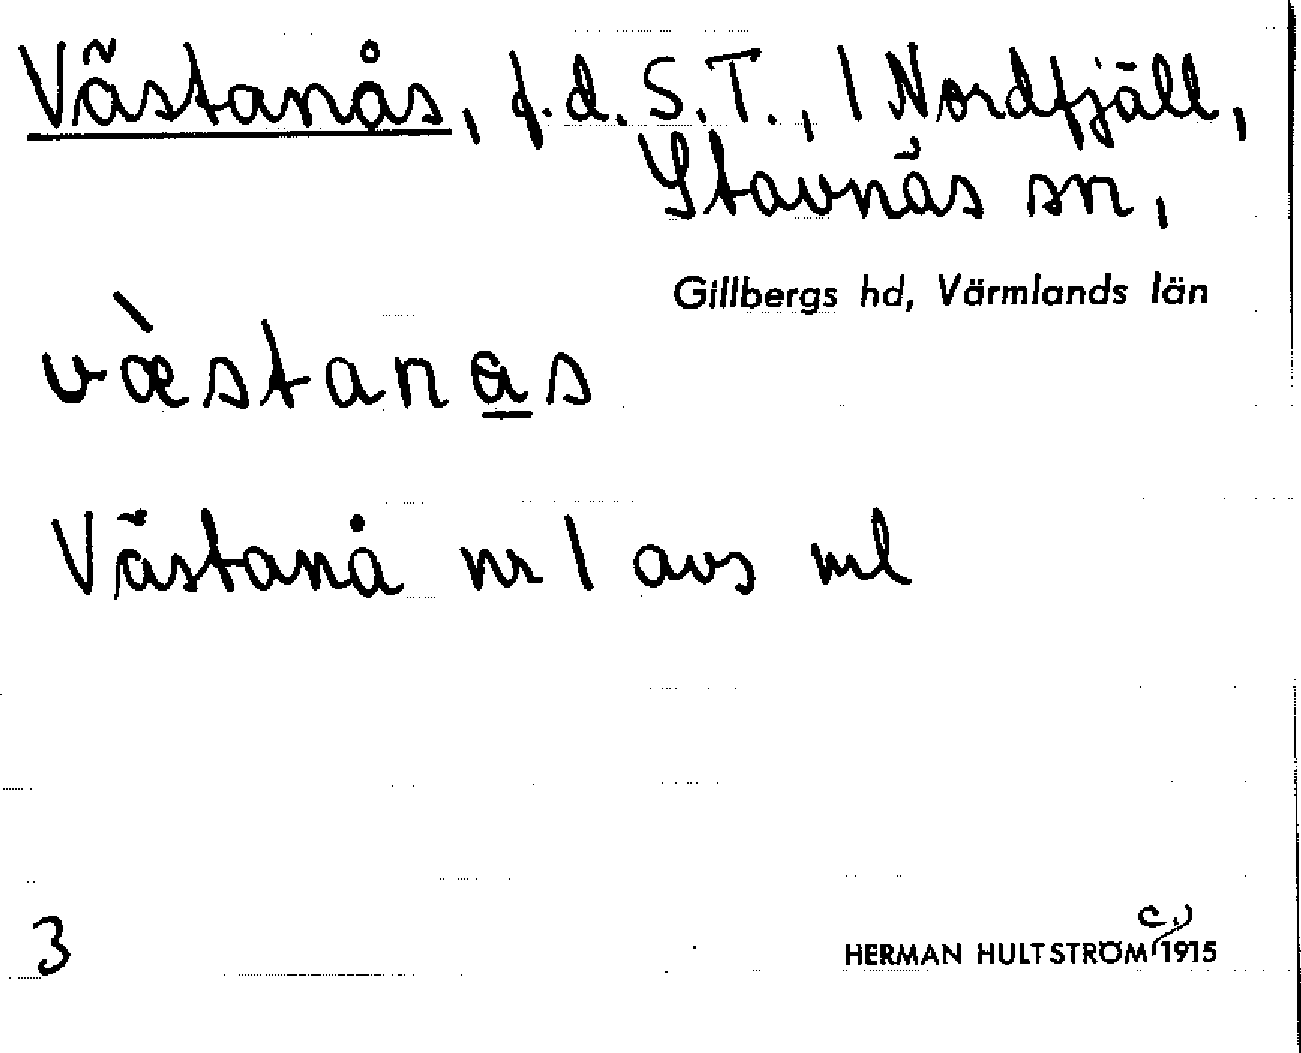 Västanås, f.d. S.T., 1 Nordfjäll,
Stavnäs sn,
Gillbergs hd, Värmlands län
væ̀stanas
Västanå nr 1 avs ml
3
c.)
HERMAN HULTSTRÖM 1915